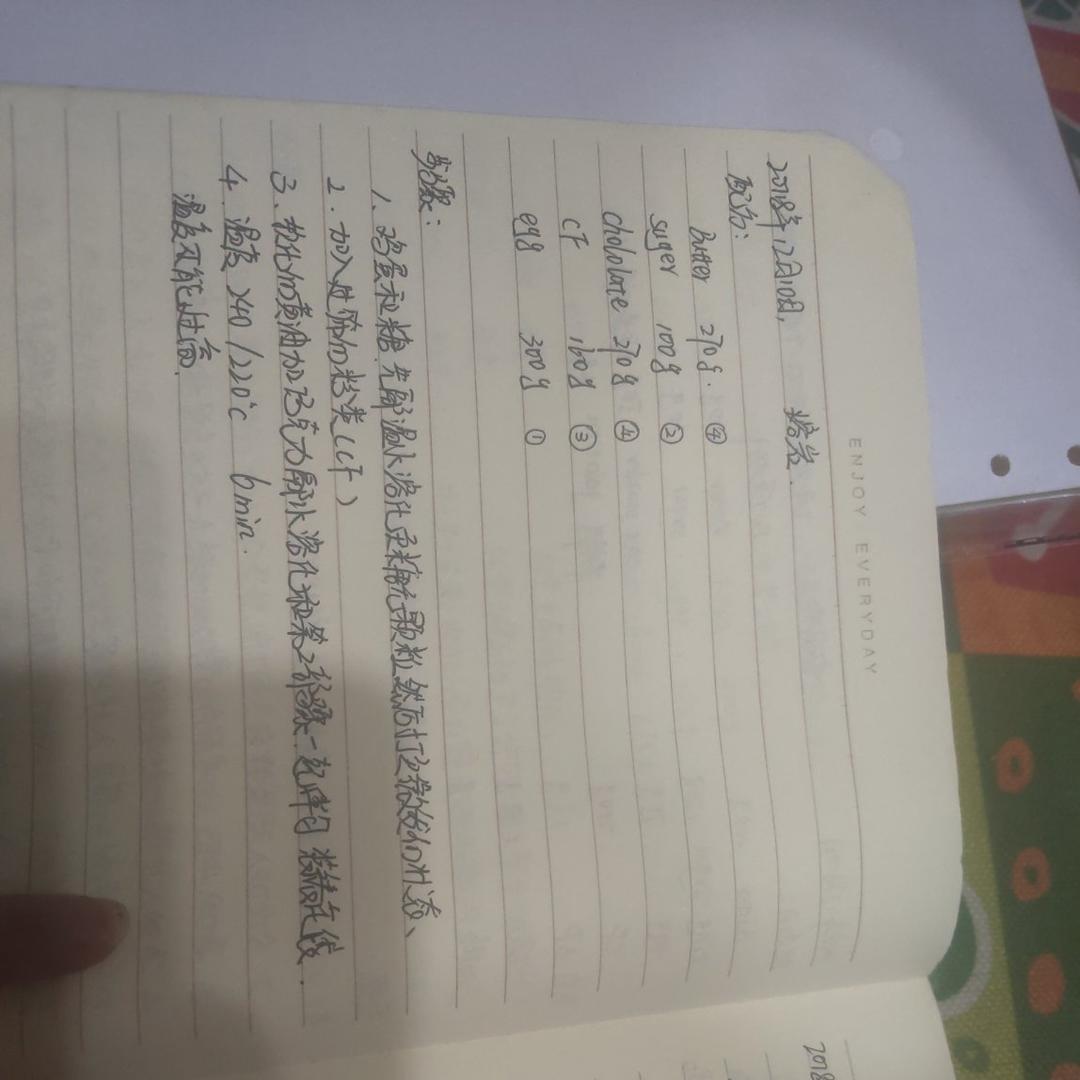 ENJOY EVERYDAY
2018年12月10日,
配方:
Butter 270g. ④
suger 100g ②
chololate 270g ④
CF 160g ③
egg 300g ①
步骤:
1、鸡蛋和糖先隔温水溶化至糖无颗粒然后打至微发的状态、
2. 加入过筛的粉类(CF)
3、软化的黄油加巧克力隔水溶化和第2步骤一起拌匀 装裱
4. 温度 240/220℃ 6min.
温度不能过高.
2018